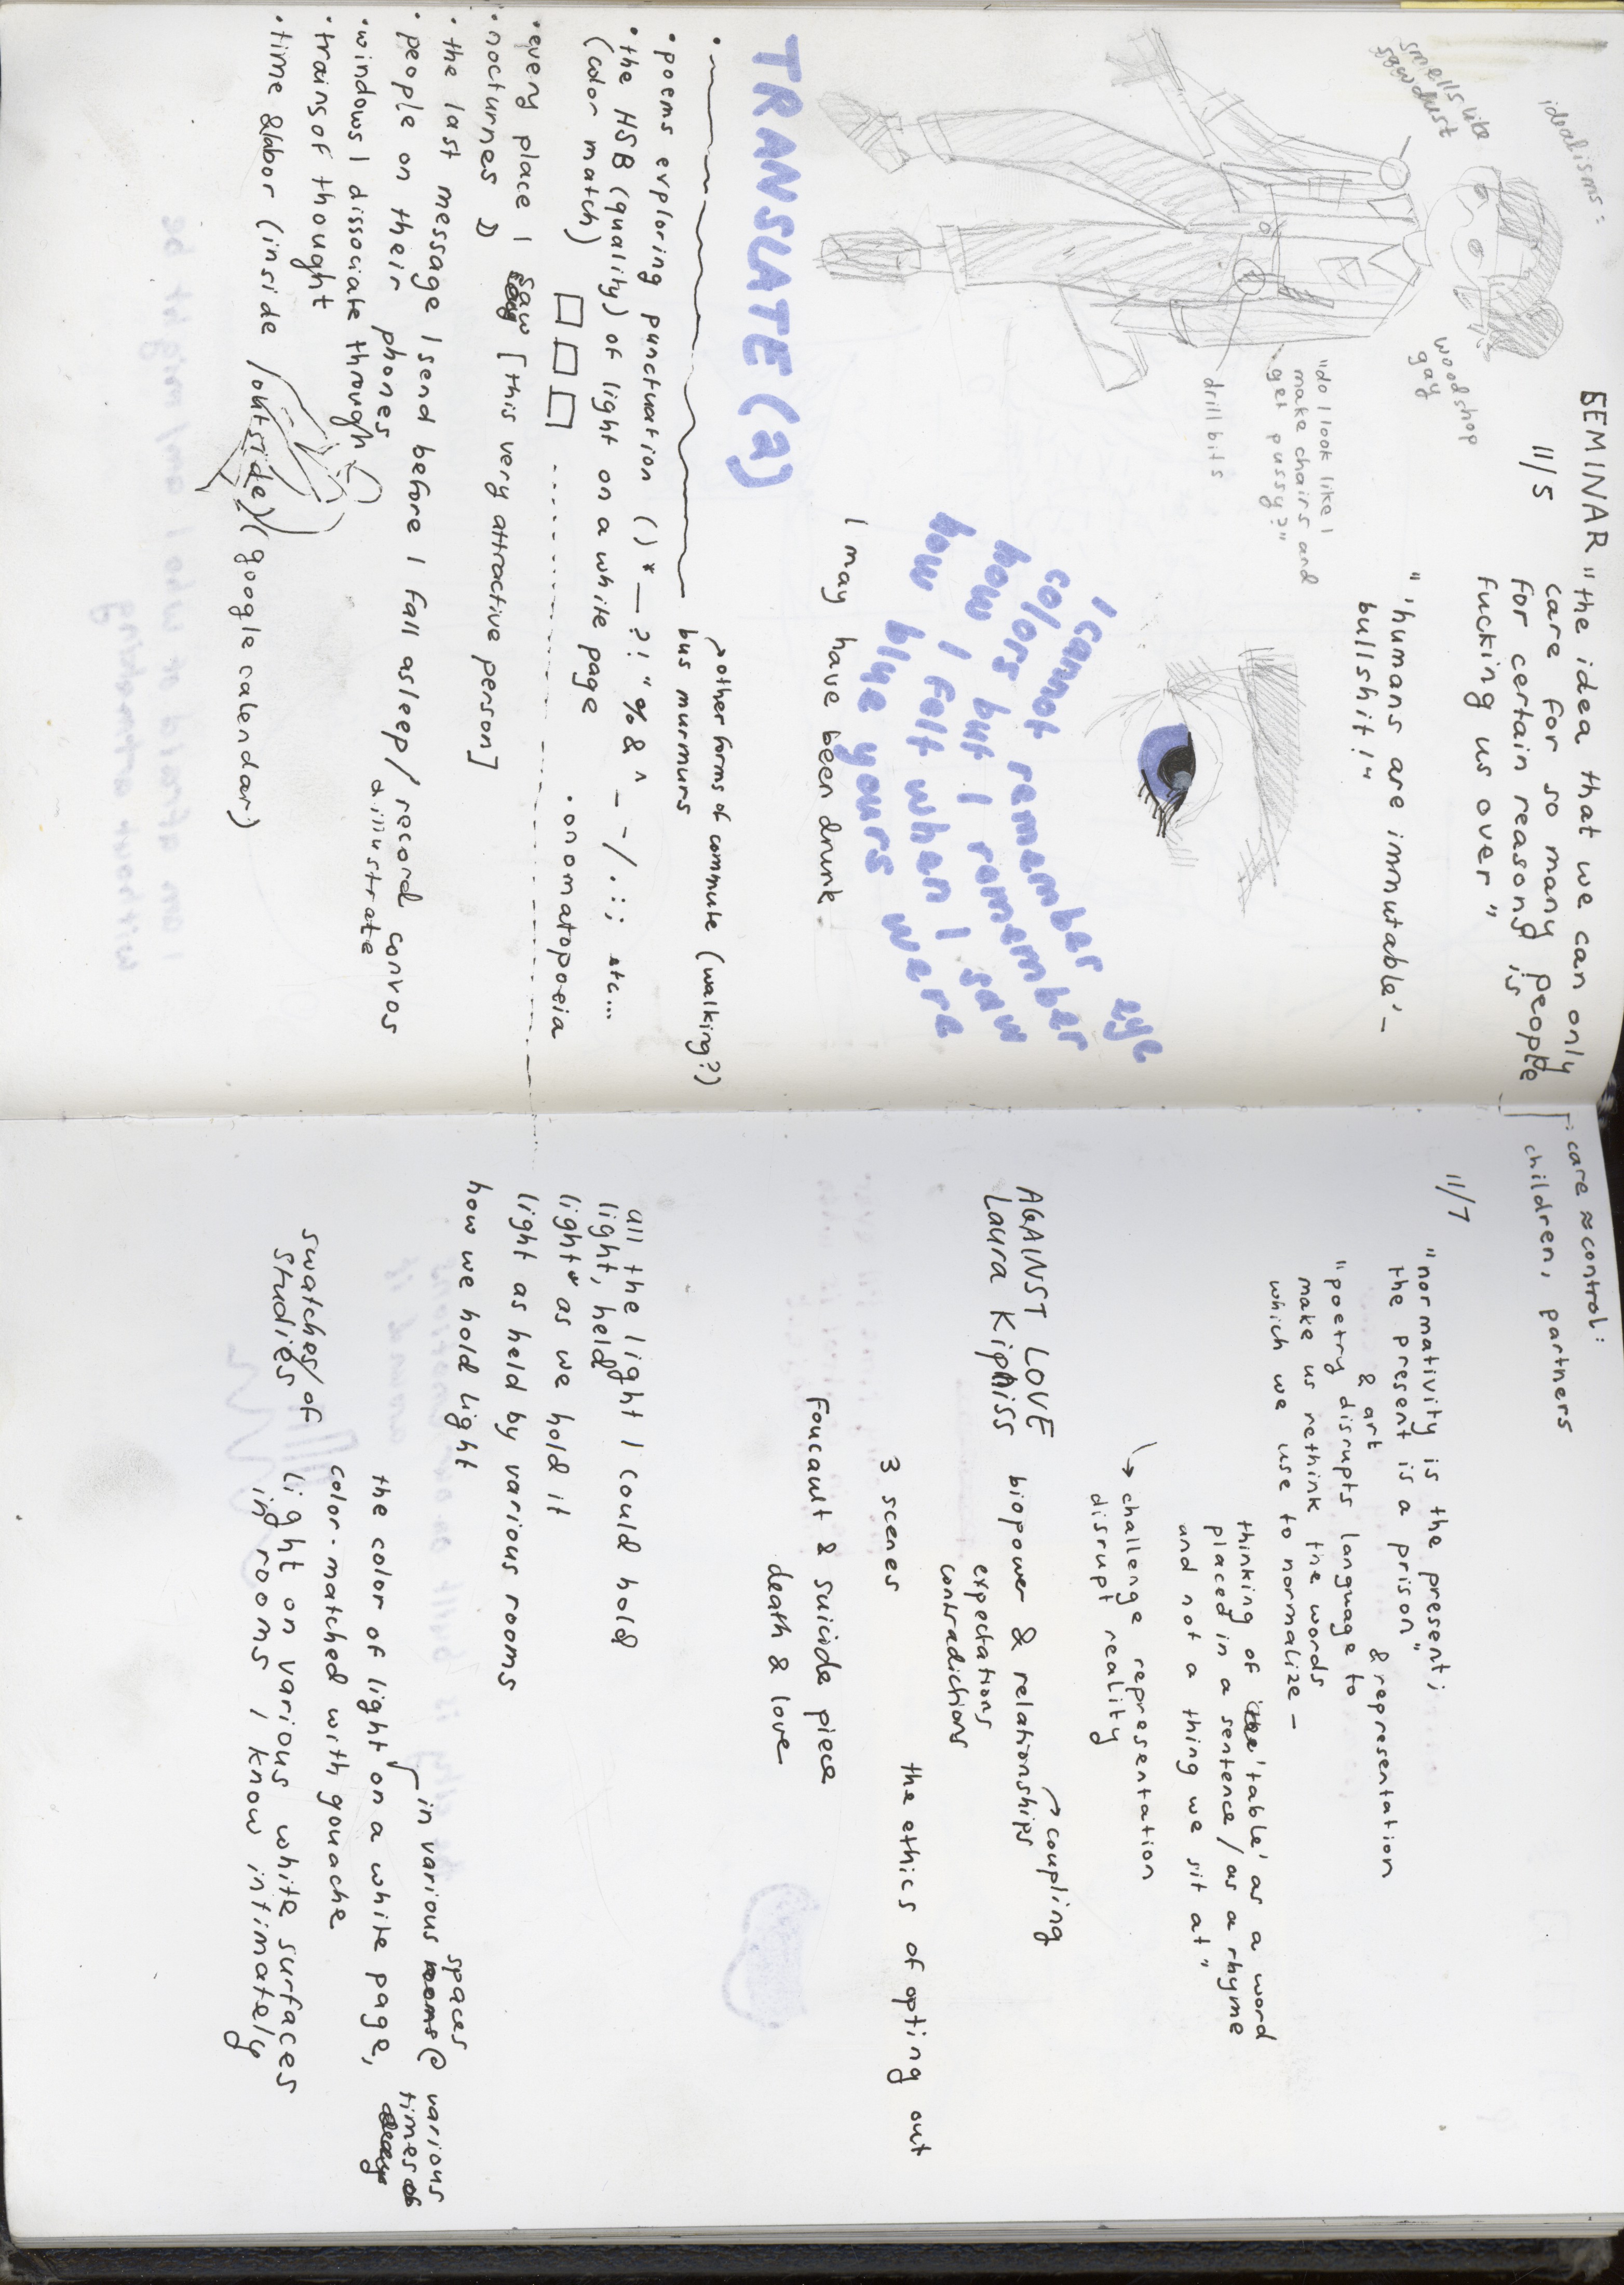 idealisms:
smells like
sawdust
woodshop
gay
"do I look like I
make chairs and
get pussy?"
drill bits
SEMINAR
11/5
"the idea that we can only
care for so many people
for certain reasons is
fucking us over"
people
"'humans are immutable' –
bullshit!"
I cannot remember eye
colors but I remember
how I felt when I saw
how blue yours were
I may have been drunk
TRANSLATE (a)
other forms of commute (walking?)
bus murmurs
• poems exploring punctuation ( ) * — ?! " % & ^ – - / . : ; etc...
• the HSB (quality) of light on a white page
(color match)
• onomatopoeia
• every place I saw [this very attractive person]
• nocturnes
• the last message I send before I fall asleep / record convos
• people on their phones
illustrate
• windows I dissociate through
• trains of thought
• time & labor (inside / outside) (google calendar)
care ≈ control:
children, partners
11/7
"normativity is the present;
the present is a prison"
& art & representation
"poetry disrupts language to
make us rethink the words
which we use to normalize –
thinking of 'table' as a word
placed in a sentence / as a rhyme
and not a thing we sit at"
→ challenge representation
disrupt reality
AGAINST LOVE
Laura Kipnis
biopower & relationships
coupling
expectations
contradictions
3 scenes
the ethics of opting out
Foucault & suicide piece
death & love
all the light I could hold
light, held
light as we hold it
light as held by various rooms
how we hold light
in various rooms @ various
spaces
times of
the color of light on a white page,
color-matched with gouache
swatches / of
studies
light on various white surfaces
in rooms I know intimately